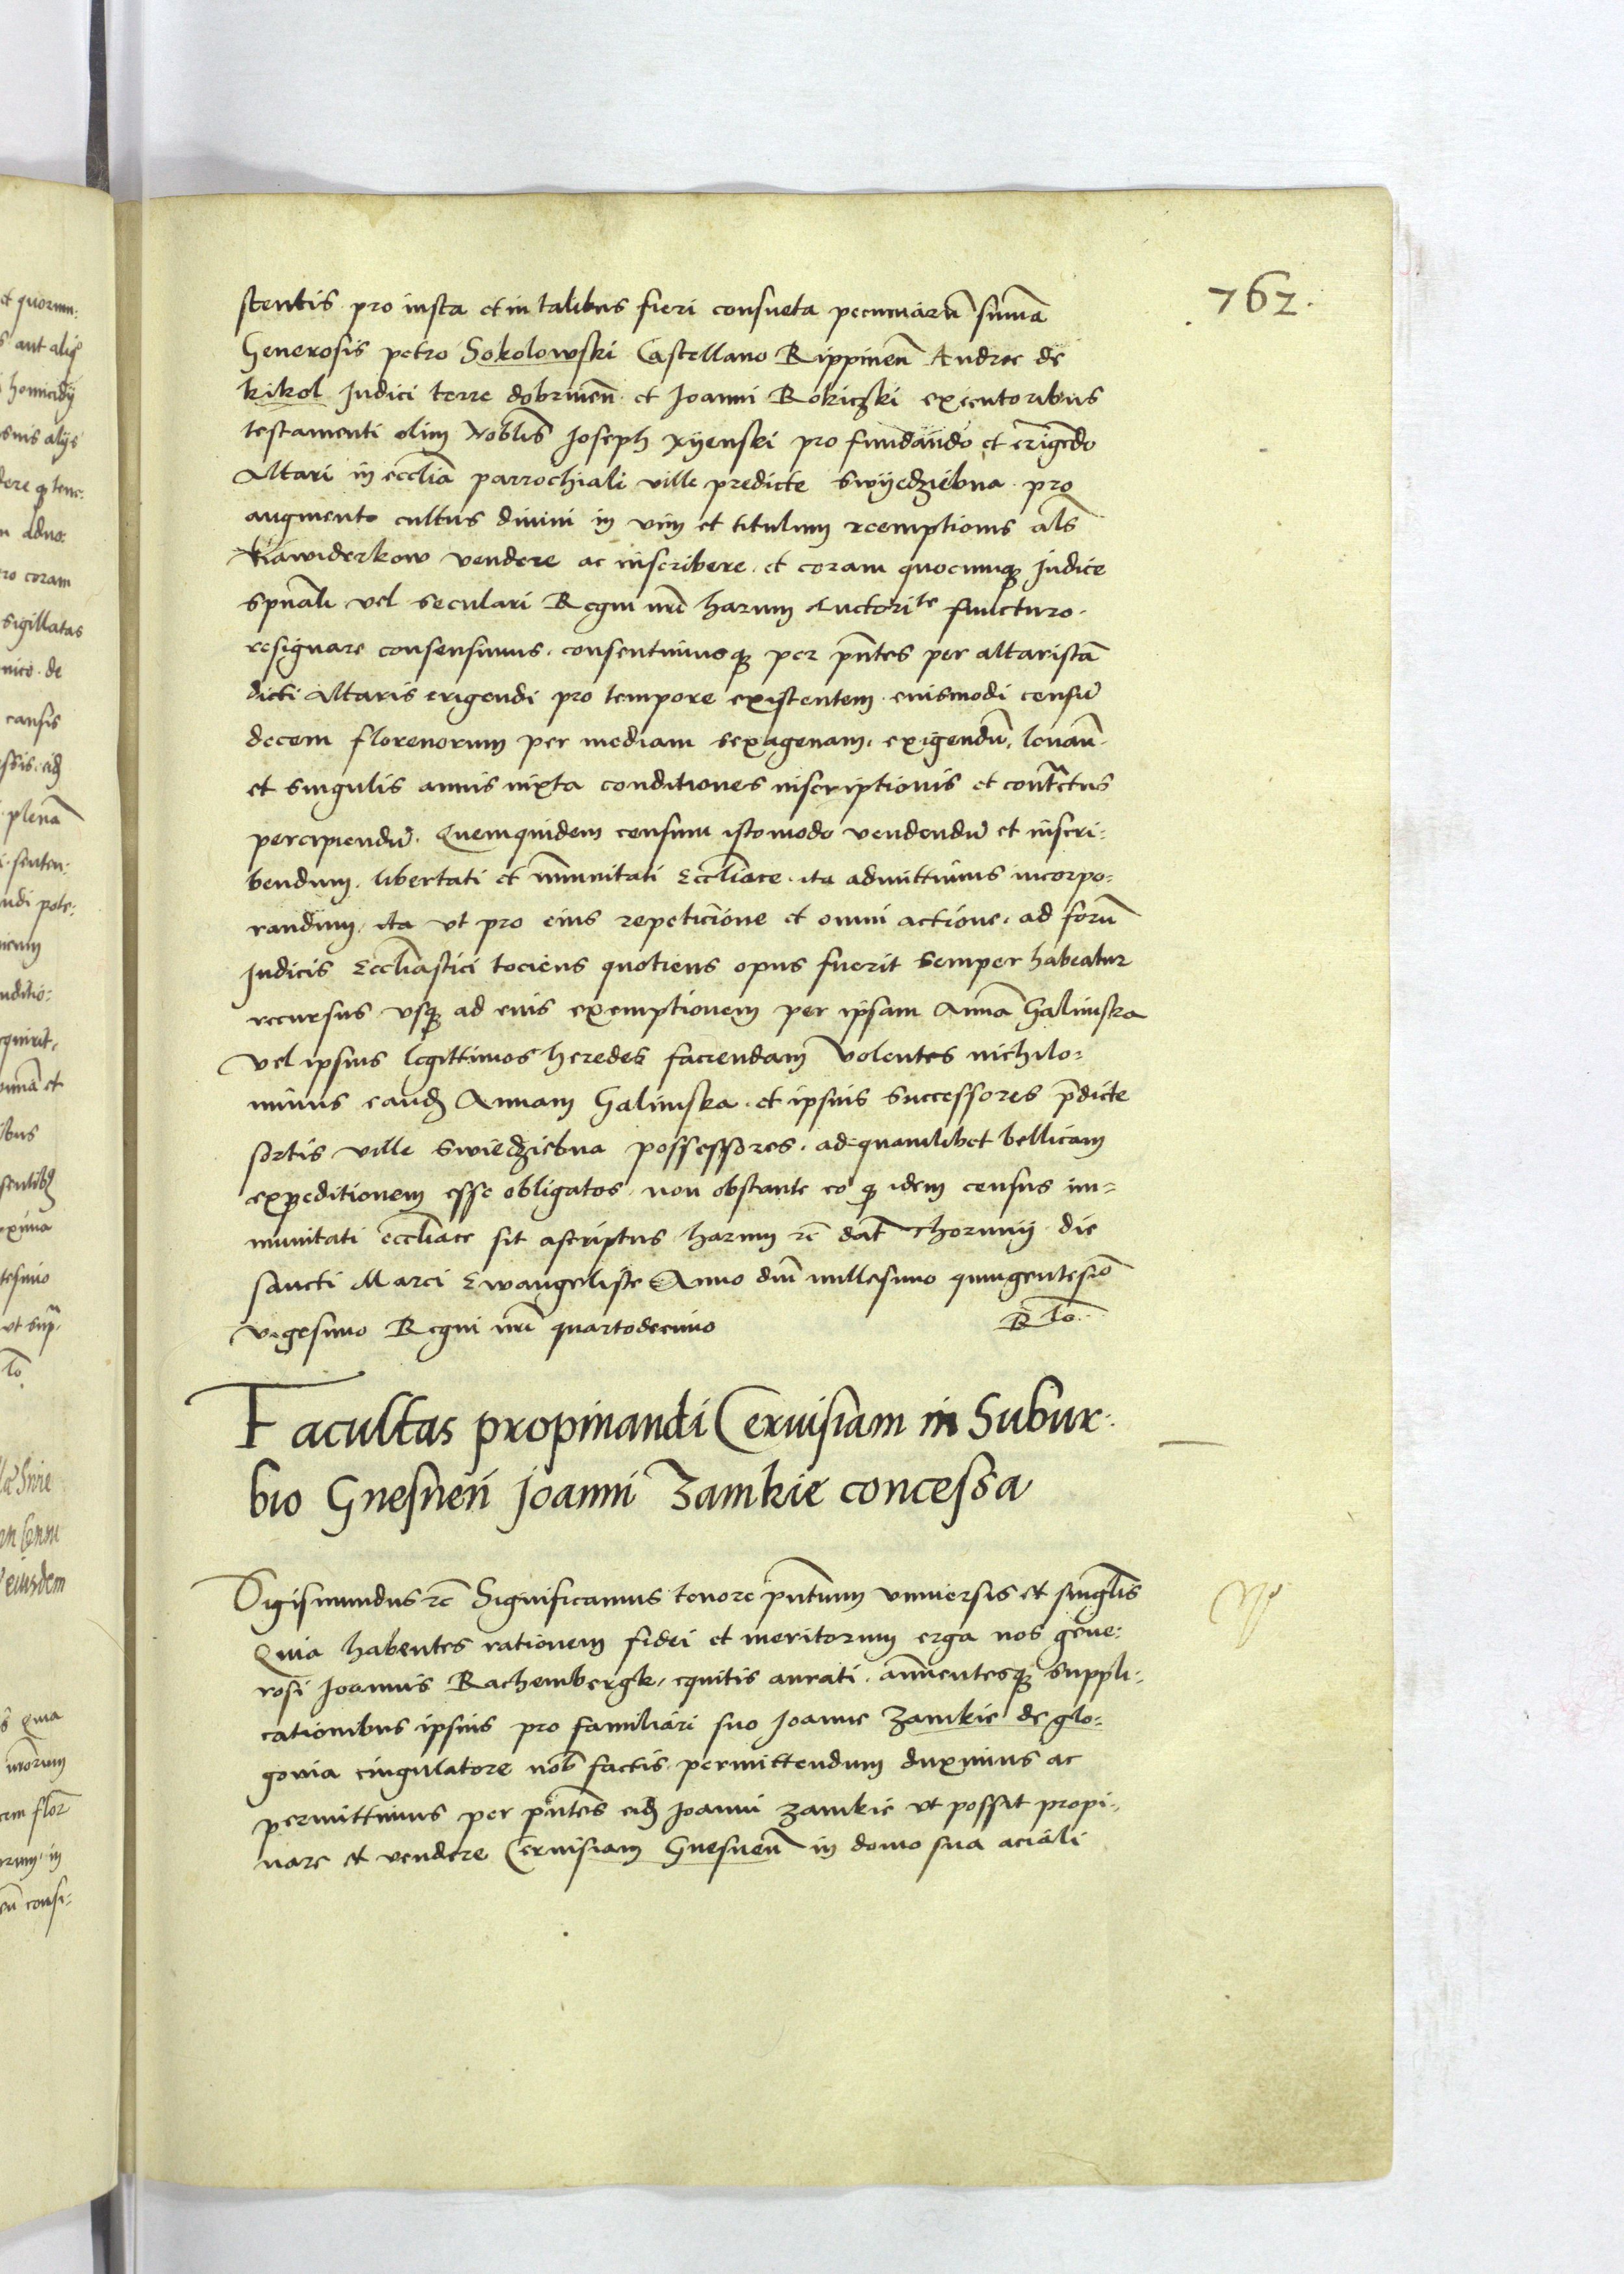 762.
stentis pro iusta et in talibus fieri consueta pecuniarū sūmā
Generosis petro Sokolowski Castellano Rippineñ Andree de
kikol Judici terre dobrineñ et Joanni Rokiczki executoribus
testamenti olim Nobl̄is Joseph xyenski pro fundando et erigēdo
Altari in eccl̄ia parrochiali ville predicte swyedziebna pro
augmento cultus divini in vim et titulum reemptionis al̄s
Nawiderkow vendere ac inscribere et coram quocunq̨ Judice
spūali vel seculari Regni nr̄i harum Auctorite functuro
resignare consensimus consentimusq̨ per pn̄tes per altaristā
dicti Altaris erigendi pro tempore existentem euismodi censū
decem florenorum per mediam sexagenam exigendū, levan̄
et singulis annis iuxta conditiones inscriptionis et contractus
percipiendū. Quemquidem censum istomodo vendendū et inscri:
bendum, libertati et īmunitati Eccl̄iace ita admittimus incorpo:
randum, ita vt pro eius repeticione et omni actione, ad forū
Judicis Eccl̄iastici tociens quotiens opus fuerit semper habeatur
recursus vsq̨ ad euis exemptionem per ipsam Annā Galinska
vel ipsius legittimos heredes faciendam Volentes nichilo:
minus eandę Annam Galinska et ipsius successores p̄dicte
sortis ville swiedziebna possessores ad quamlibet bellicam
expeditionem esse obligatos non obstante eo q̨ idem census im=
munitati eccl̄iace sit ascriptus harum rc̄ dat̄ Thorunij die
sancti Marci Ewangeliste Anno dn̄i millesimo quingentesīo
vigesimo Regni nr̄i quartodecimo R to.
Facultas propinandi Cervisiam in Subur:
bio Gnesneñ Joanni Zamkie concessa
Sigismundus rc̄ Significamus tenore pn̄tium vniversis et singl̄is
Quia habentes rationem fidei et meritorum erga nos gene:
rosi Joannis Rachembergk, equitis aurati, annuentesq̨ suppli:
cationibus ipsius pro familiari suo Joanne Zamkie de glo:
govia cingulatore nob̄ factis permittendum duximus ac
permittimus per pn̄tes eidę Joanni zamkie vt possit propi:
nare et vendere Cervisiam Gnesneñ in domo sua aciali